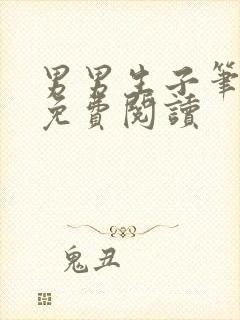 男男生子筆
免費閱讀
鬼丑